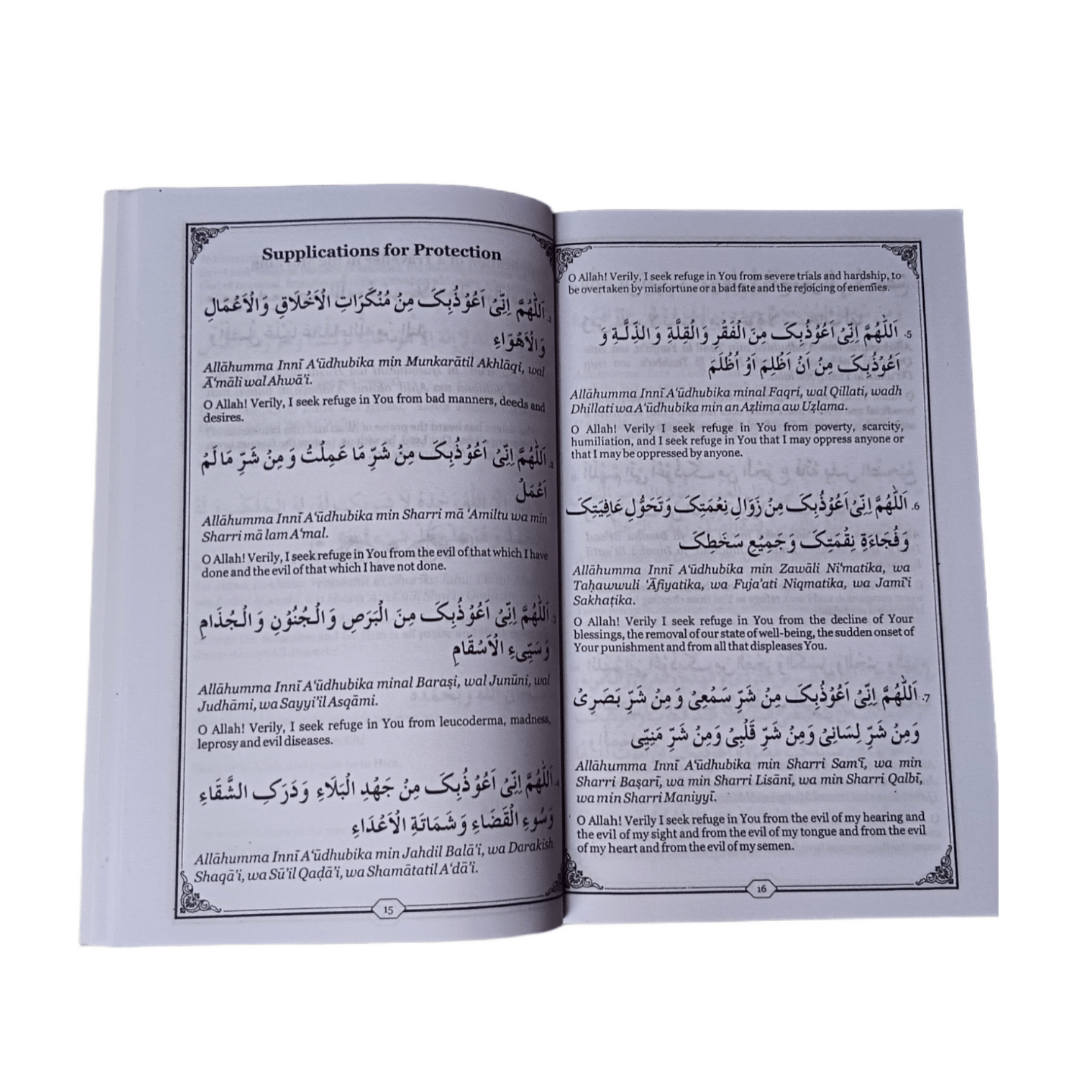 Supplications for Protection
اَللّٰهُمَّ اِنِّىْ اَعُوْذُبِکَ مِنْ مُنْکَرَاتِ الْاَخْلَاقِ وَالْاَعْمَالِ
وَالْاَهْوَاءِ
Allāhumma Innī A'ūdhubika min Munkarātil Akhlāqi, wal
Ā'māli wal Ahwā'i.
O Allah! Verily, I seek refuge in You from bad manners, deeds and
desires.
اَللّٰهُمَّ اِنِّىْ اَعُوْذُبِکَ مِنْ شَرِّ مَا عَمِلْتُ وَمِنْ شَرِّ مَالَمْ
اَعْمَلْ
Allāhumma Innī A'ūdhubika min Sharri mā 'Amiltu wa min
Sharri mā lam A'mal.
O Allah! Verily, I seek refuge in You from the evil of that which I have
done and the evil of that which I have not done.
اَللّٰهُمَّ اِنِّىْ اَعُوْذُبِکَ مِنَ الْبَرَصِ وَالْجُنُوْنِ وَالْجُذَامِ
وَسَيِّىءِ الْاَسْقَامِ
Allāhumma Innī A'ūdhubika minal Baraṣi, wal Junūni, wal
Judhāmi, wa Sayyi'il Asqāmi.
O Allah! Verily, I seek refuge in You from leucoderma, madness,
leprosy and evil diseases.
اَللّٰهُمَّ اِنِّىْ اَعُوْذُبِکَ مِنْ جَهْدِ الْبَلَاءِ وَدَرَکِ الشَّقَاءِ
وَسُوءِ الْقَضَاءِ وَشَمَاتَةِ الْاَعْدَاءِ
Allāhumma Innī A'ūdhubika min Jahdil Balā'i, wa Darakish
Shaqā'i, wa Sū'il Qaḍā'i, wa Shamātatil A'dā'i.
15
O Allah! Verily, I seek refuge in You from severe trials and hardship, to
be overtaken by misfortune or a bad fate and the rejoicing of enemies.
5. اَللّٰهُمَّ اِنِّىْ اَعُوْذُبِکَ مِنَ الْفَقْرِ وَالْقِلَّةِ وَالذِّلَّةِ وَ
اَعُوْذُبِکَ مِنْ اَنْ اَظْلِمَ اَوْ اُظْلَمَ
Allāhumma Innī A'ūdhubika minal Faqri, wal Qillati, wadh
Dhillati wa A'ūdhubika min an Aẓlima aw Uẓlama.
O Allah! Verily I seek refuge in You from poverty, scarcity,
humiliation, and I seek refuge in You that I may oppress anyone or
that I may be oppressed by anyone.
6. اَللّٰهُمَّ اِنِّىْ اَعُوْذُبِکَ مِنْ زَوَالِ نِعْمَتِکَ وَتَحَوُّلِ عَافِيَتِکَ
وَفُجَاءَةِ نِقْمَتِکَ وَجَمِيْعِ سَخَطِکَ
Allāhumma Innī A'ūdhubika min Zawāli Ni'matika, wa
Taḥawwuli 'Āfiyatika, wa Fuja'ati Niqmatika, wa Jamī'i
Sakhaṭika.
O Allah! Verily I seek refuge in You from the decline of Your
blessings, the removal of our state of well-being, the sudden onset of
Your punishment and from all that displeases You.
7. اَللّٰهُمَّ اِنِّىْ اَعُوْذُبِکَ مِنْ شَرِّ سَمْعِىْ وَمِنْ شَرِّ بَصَرِىْ
وَمِنْ شَرِّ لِسَانِىْ وَمِنْ شَرِّ قَلْبِىْ وَمِنْ شَرِّ مَنِيِّى
Allāhumma Innī A'ūdhubika min Sharri Sam'ī, wa min
Sharri Baṣarī, wa min Sharri Lisānī, wa min Sharri Qalbī,
wa min Sharri Maniyyī.
O Allah! Verily I seek refuge in You from the evil of my hearing and
the evil of my sight and from the evil of my tongue and from the evil
of my heart and from the evil of my semen.
16